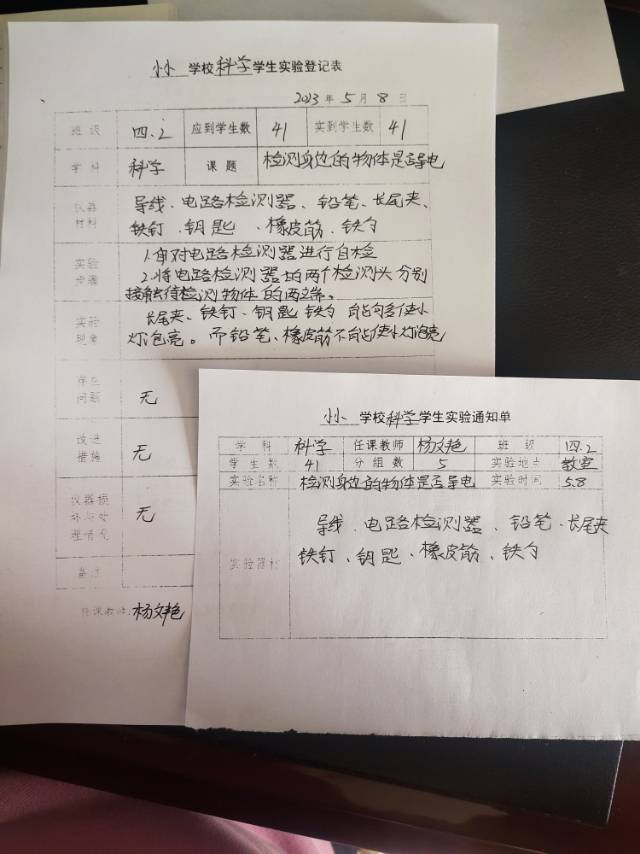 小小 学校科学学生实验登记表
2023年5月8日
班级 四.2 应到学生数 41 实到学生数 41
学科 科学 课题 检测身边的物体是否导电
仪器材料 导线、电路检测器、铅笔、长尾夹、
铁钉、钥匙、橡皮筋、铁勺
实验步骤 1.审对电路检测器进行自检
2.将电路检测器的两个检测头分别
接触待检测物体的两端。
实验现象 长尾夹、铁钉、钥匙 铁勺 能够使小
灯包亮。而铅笔、橡皮筋不能使小灯泡亮
存在问题 无
改进措施 无
仪器损坏与处理情况 无
备注
任课教师:杨文艳
小小 学校科学学生实验通知单
学科 科学 任课教师 杨文艳 班级 四.2
学生数 41 分组数 5 实验地点 教室
实验名称 检测身边的物体是否导电 实验时间 5.8
实验器材 导线、电路检测器、铅笔、长尾夹
铁钉、钥匙、橡皮筋、铁勺